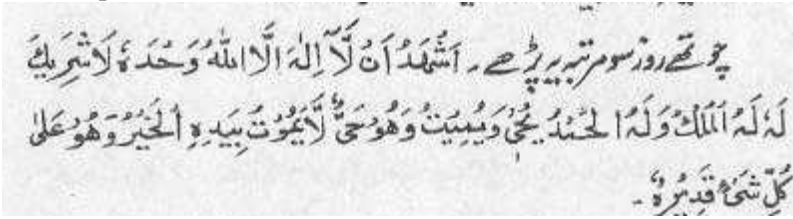 چوتھے روز سو مرتبہ یہ پڑھے۔ اَشْهَدُ اَنْ لَّآ اِلٰہَ اِلَّا اللّٰہُ وَحْدَہٗ لَاشَرِیْكَ
لَہٗ لَہُ الْمُلْكُ وَلَہُ الْحَمْدُ یُحْیٖ وَیُمِیْتُ وَهُوَ حَیٌّ لَّا یَمُوْتُ بِیَدِہِ الْخَیْرُ وَهُوَ عَلٰی
كُلِّ شَیْءٍ قَدِیْرٌ ہ۔